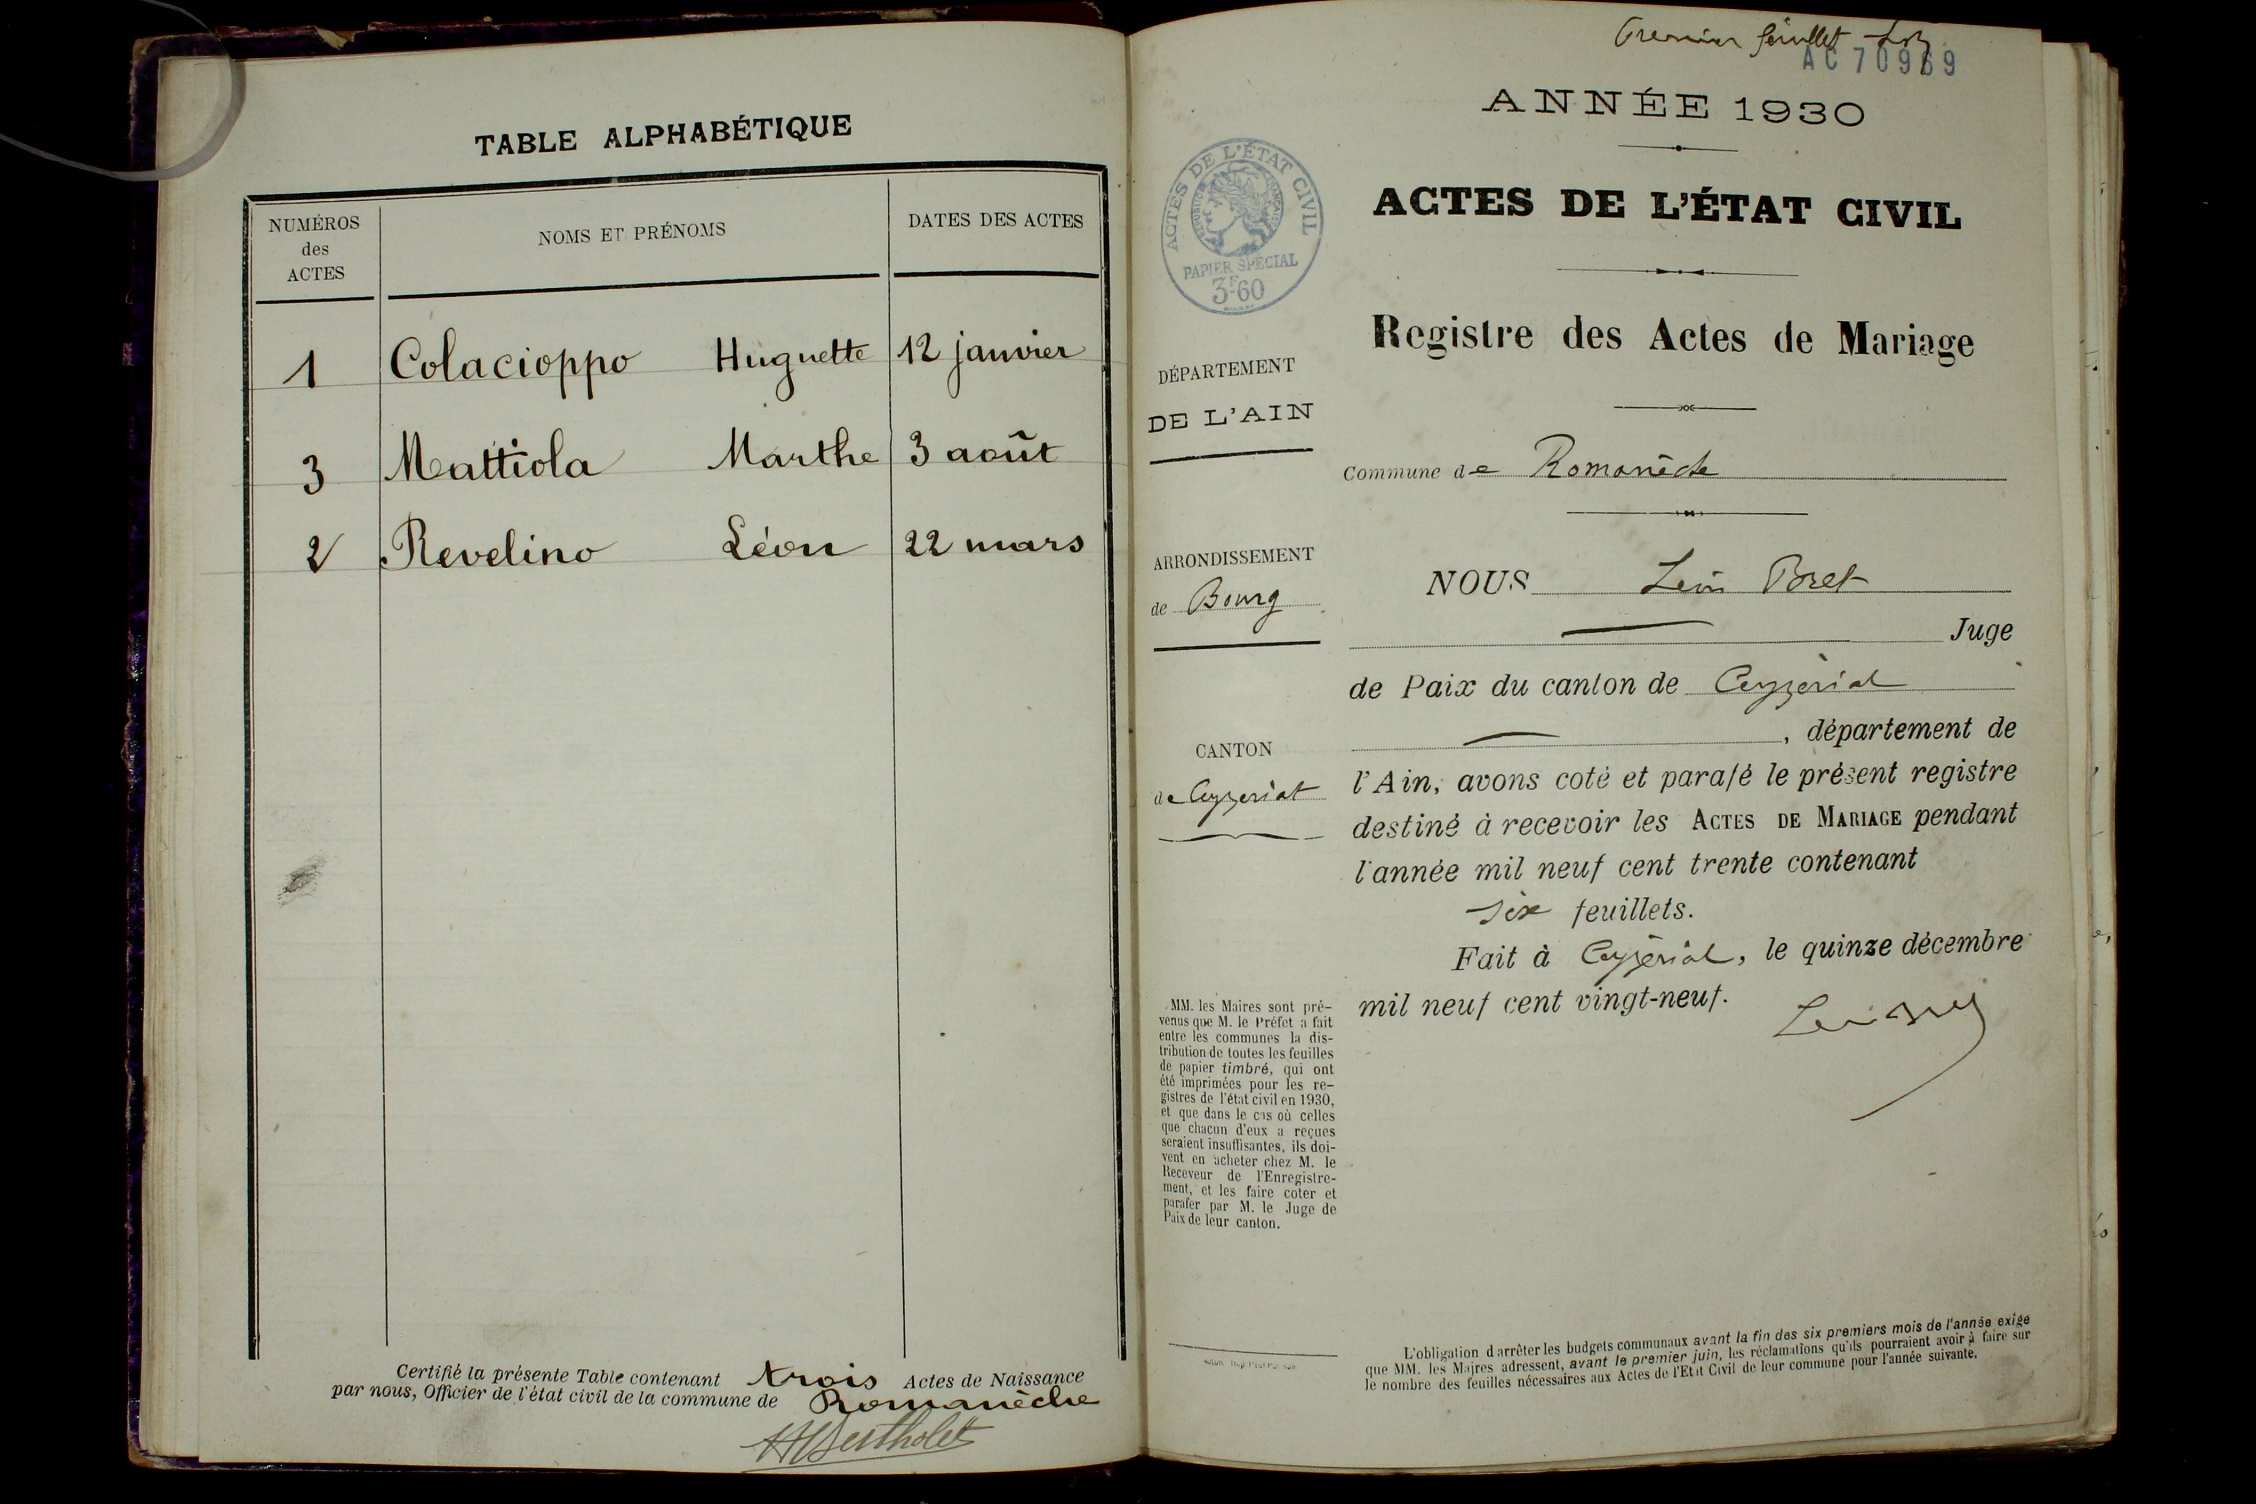 TABLE ALPHABÉTIQUE
NUMÉROS
des
ACTES
NOMS ET PRÉNOMS
DATES DES ACTES
1 Colacioppo Huguette 12 janvier
3 Mattiola Marthe 3 août
2 Revelino Léon 22 mars
Certifié la présente Table contenant trois Actes de Naissance
par nous, Officier de l'état civil de la commune de Romanèche
Bertholet
Premier feuillet
AC 70969
ANNÉE 1930
ACTES DE L'ÉTAT CIVIL
RÉPUBLIQUE FRANÇAISE
PAPIER SPÉCIAL
3F60
ACTES DE L'ÉTAT CIVIL
Registre des Actes de Mariage
DÉPARTEMENT
DE L'AIN
ARRONDISSEMENT
de Bourg
CANTON
de Ceyzériat
Commune de Romanèche
NOUS Léon Bret
Juge
de Paix du canton de Ceyzériat
, département de
l'Ain, avons coté et parafé le présent registre
destiné à recevoir les ACTES DE MARIAGE pendant
l'année mil neuf cent trente contenant
six feuillets.
Fait à Ceyzériat, le quinze décembre
mil neuf cent vingt-neuf.
MM. les Maires sont pré-
venus que M. le Préfet a fait
entre les communes la dis-
tribution de toutes les feuilles
de papier timbré, qui ont
été imprimées pour les re-
gistres de l'état civil en 1930,
et que dans le cas où celles
que chacun d'eux a reçues
seraient insuffisantes, ils doi-
vent en acheter chez M. le
Receveur de l'Enregistre-
ment, et les faire coter et
parafer par M. le Juge de
Paix de leur canton.
L'obligation d'arrêter les budgets communaux avant la fin des six premiers mois de l'année exige
que MM. les Maires adressent, avant le premier juin, les réclamations qu'ils pourraient avoir à faire sur
le nombre des feuilles nécessaires aux Actes de l'Etat Civil de leur commune pour l'année suivante.